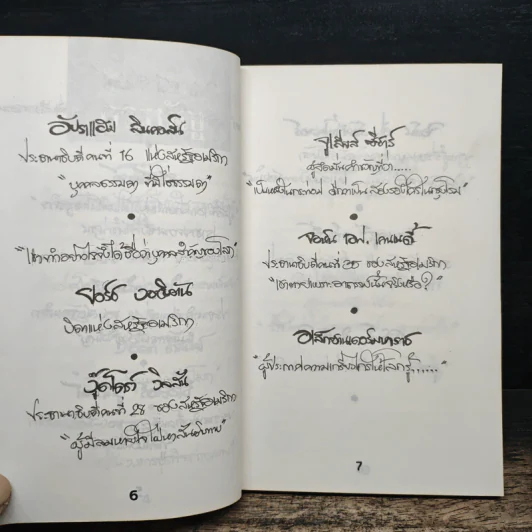 อับราฮัม ลินคอล์น
ประธานาธิบดีคนที่ 16 แห่งสหรัฐอเมริกา
"บุคคลธรรมดา ที่ไม่ธรรมดา"
•
"เขาทำอย่างไรจึงได้ชื่อว่าบุคคลสำคัญของโลก"
ยอร์ช วอชิงตัน
บิดาแห่งสหรัฐอเมริกา
•
วู๊ดโดรว์ วิลสัน
ประธานาธิบดีคนที่ 28 ของสหรัฐอเมริกา
"ผู้มีลมหายใจ
6
จูเลียสส์ ซีซาร์
"เป็นหนึ่งใน
•
จอห์น เอฟ. เคนเนดี้
ประธานาธิบดีคนที่ 35 ของสหรัฐอเมริกา
"เขาตายเพราะ จริงหรือ?"
•
อเล็กซานเดอร์มหาราช
"ผู้ประกาศความเกรียงไกรให้โลกรู้......"
7